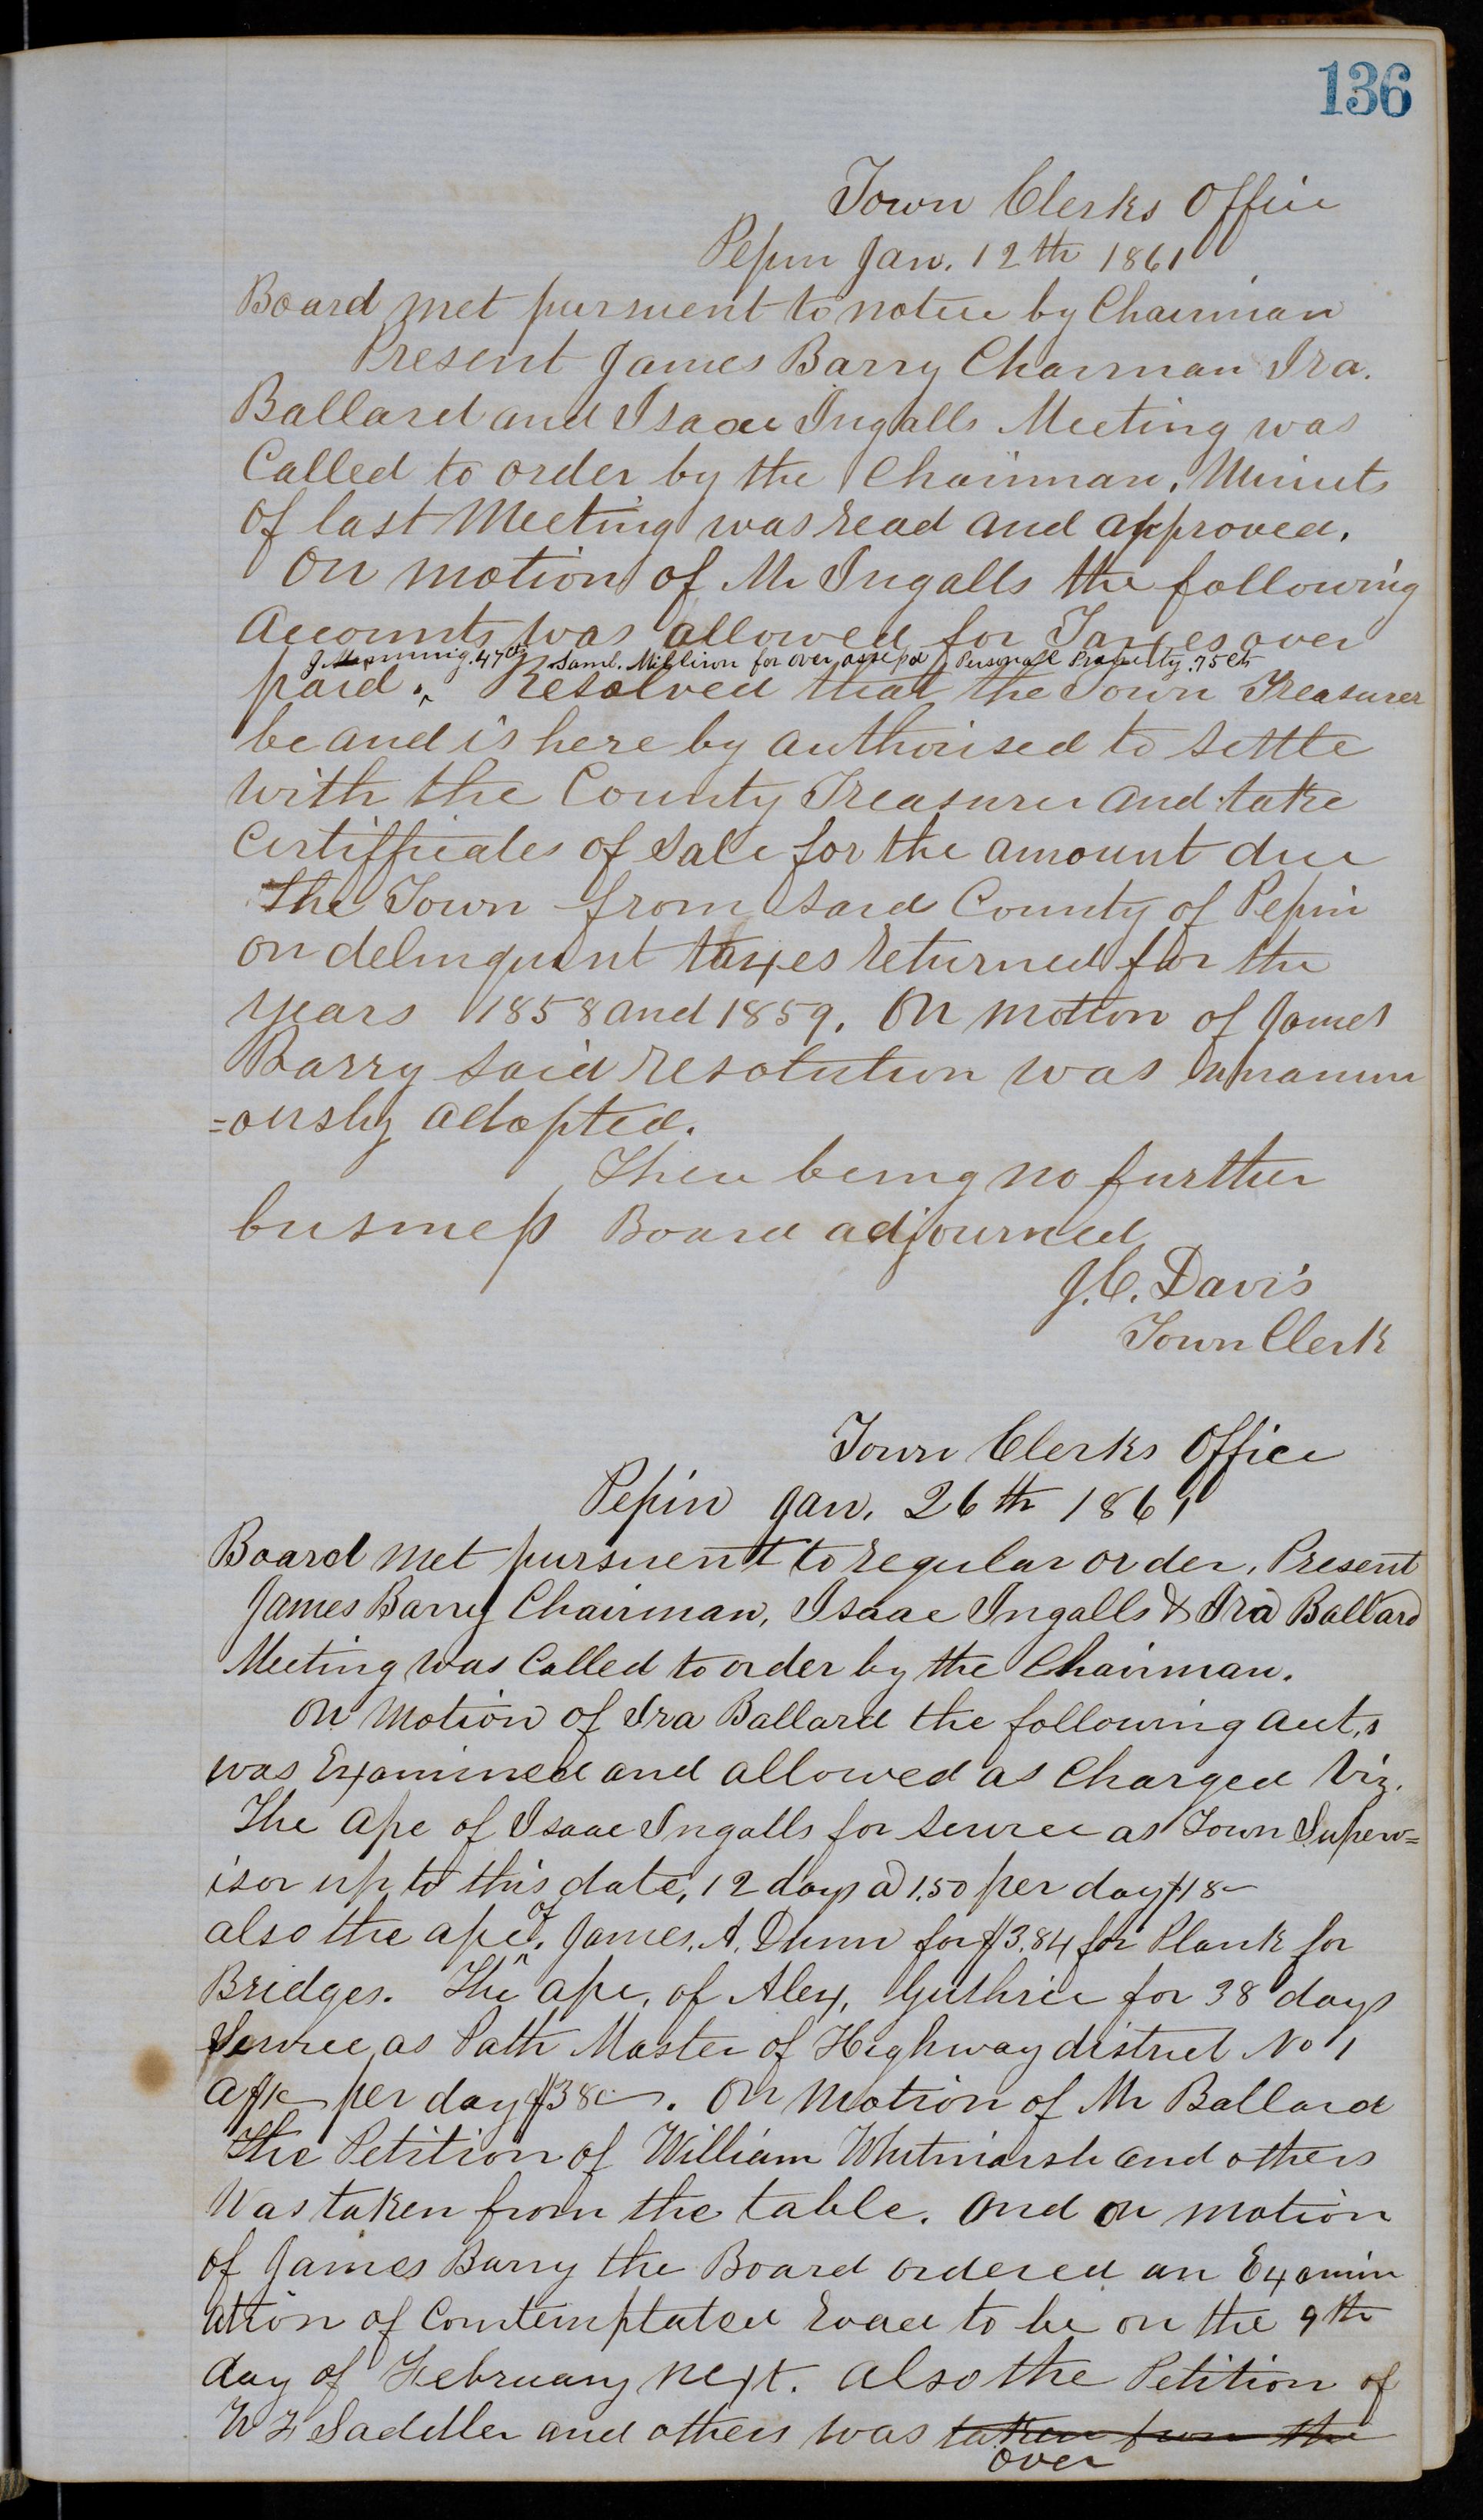 136
Town Clerks Office
Pepin Jan. 12th 1861
Board met pursuent to notice by Chairman
Present James Barry Chairman Ira.
Ballard and Isaac Ingalls Meeting was
Called to order by the Chairman. Minuts
of last Meeting was read and approved.
On motion of Mr Ingalls the following
Accounts was allowed for Taxes over
J. Manning .47cts Saml. Milliron for over assessd Personal Property .75cts
paid. ^ Resolved that the Town Treasurer
be and is here by authorised to settle
with the County Treasurer and take
Certifficates of Sale for the amount due
the Town from said County of Pepin
on delinquent taxes returned for the
years 1858 and 1859. On motion of James
Barry said resolution was unanim
=ously adopted.
There being no further
business Board adjourned
J.C. Davis
Town Clerk
Town Clerks Office
Pepin Jan. 26th 1861
Board met pursuent to regular order. Present
James Barry Chairman, Isaac Ingalls & Ira Ballard
Meeting was Called to order by the Chairman.
On Motion of Ira Ballard the following acct,s
was Examined and allowed as Charged Viz.
The apc of Isaac Ingalls for Service as Town Superv=
isor up to this date, 12 days @ 1.50 per day $18-
of
also the apc. ^ James. A. Dunn for $3.84 for Plank for
Bridges. The apc. of Alex. Guthrie for 38 days
Service as Path Master of Highway district No 1
per day $38-. On Motion of Mr Ballard
the Petition of William Whitmarsh and others
Was taken from the table. and on motion
of James Barry the Board ordered an Examin
ation of Contemplated Road to be on the 9th
day of February next. also the Petition of
W F Saddler and others was taken from the
over